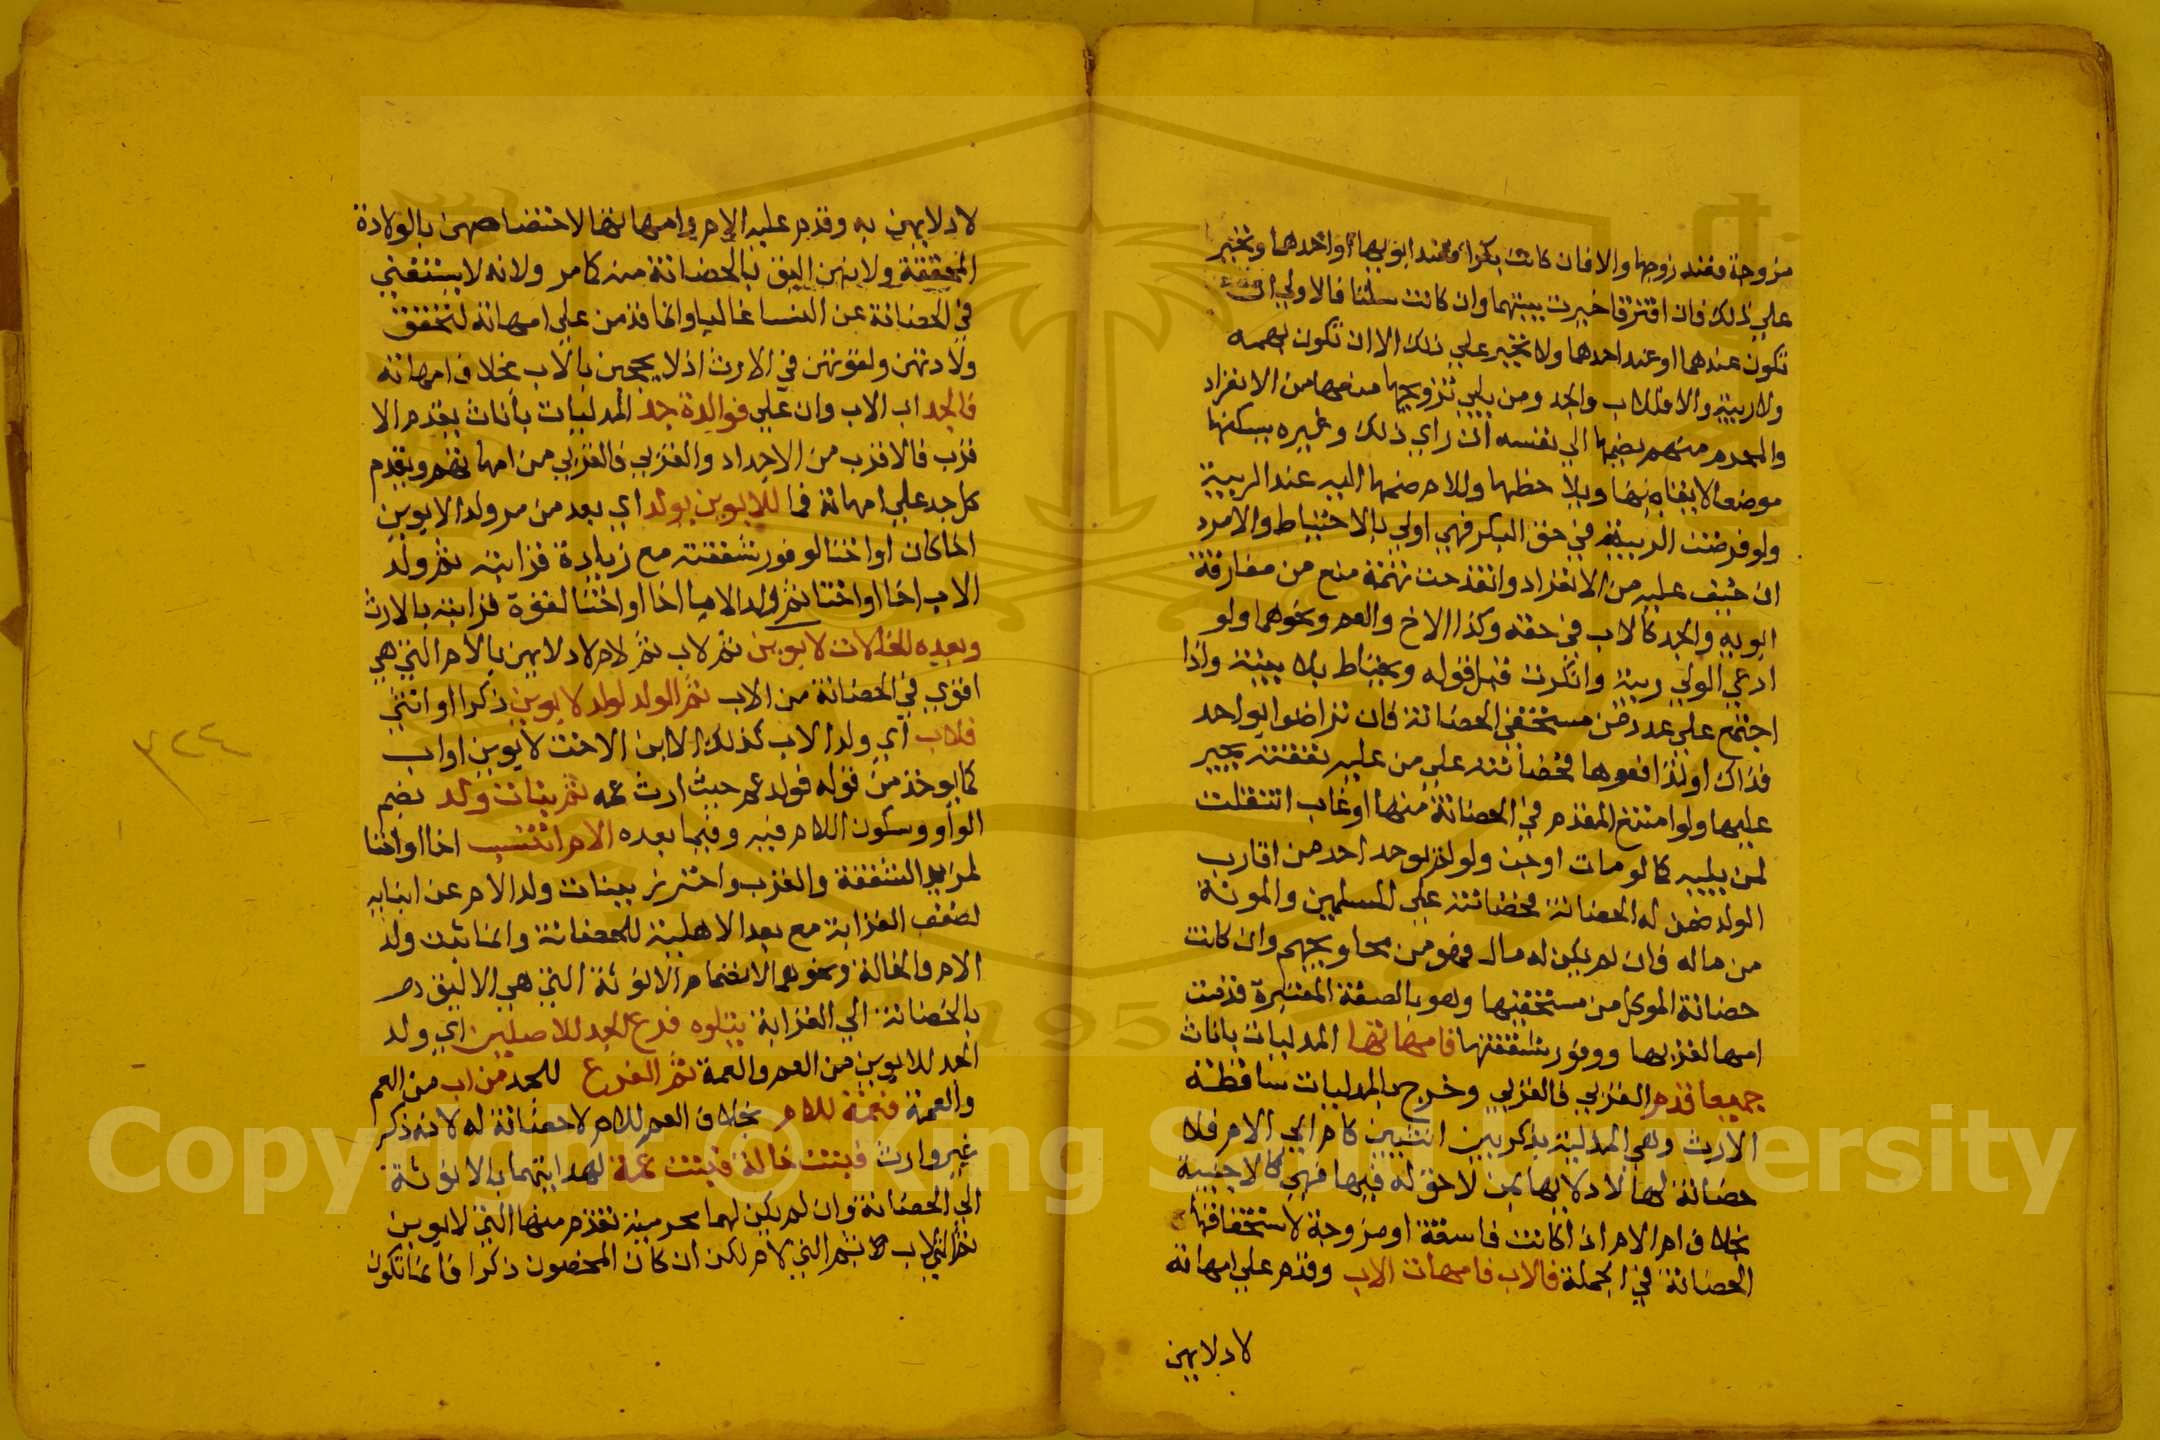 مزوجة فعند زوجها والا فان كانت بكرا فعند ابويها او احدهما وتخير
علي ذلك فان افترقا خيرت بينهما وان كانت سلتا فالاولي ان
تكون عندهما او عند احدهما ولا تخير علي ذلك الا ان تكون تهمه
ولا ريبة والا فللاب والجد ومن يلي تزويجها منعها من الانفراد
والمحرم منهم يضمها الي نفسه ان راي ذلك وغيره يسكنها
موضعا لايقابها ويلاحظها وللام ضمها اليه عند الريبة
ولو فرضت الريبة في حق البكر فهي اولي بالاحتياط والامرد
ان خيف عليه من الانفراد وانقدحت تهمة منع من مفارقة
ابويه والجد كالاب في حقه وكذا الاخ والعم ونحوهما ولو
ادعي الولي ريبة وانكرت قبل قوله ويحتاط بلا بينة واذا
اجتمع علي عدد من مستحقي الحضانة فان تراضوا بواحد
فذاك او تدافعوها فحضانته علي من عليه نفقته يجبر
عليها ولو امتنع المقدم في الحضانة منها او غاب انتقلت
لمن يليه كما لو مات اوجن ولو لم يوجد احد من اقارب
الولد ممن له الحضانة فحضانته علي المسلمين والمونة
من ماله فان لم يكن له مال فهو من محاويجهم وان كانت
حضانة الموكل من مستحقيها وهو بالصفة المعتبرة قدمت
امها لقربها ووفور شفقتها فامهاتها المدليات باناث
جميعا قدم القربي فالقربي وخرج بالمدليات ساقطة
الارث وهي المدلية بذكر بين انثيين كام ابي الام فلا
حضانة لها لادلائها بمن لا حق له فيها فهي كالاجنبية
بخلاف ام الام اذا كانت فاسقة او مزوجة لاستحقاقها
الحضانة في الجملة فالاب فامهات الاب وقدم علي امهاته
لادلايهن
لادلايهن به وقدم عليه الام وامهاتها لاختصاصهن بالولادة
المحققة ولانهن اليق بالحضانة منه كما مر ولانه لا يستغني
في الحضانة عن النسا غالبا وانما قدمن علي امهاته لتحقق
ولادتهن ولقوتهن في الارث اذ لا يحجبن بالاب بخلاف امهاته
فالجد اب الاب وان علي فوالدة جد المدليات باناث يقدم الا
قرب فالاقرب من الاجداد والقربي فالقربي من امهاتهم ويقدم
كل جد علي امهاته فا للابوين يولد اي بعد من مر ولد الابوين
اخا كان او اختا لوفور شفقته مع زيادة قرابته ثم ولد
الاب اخا او اختا ثم ولد الام اخا او اختا لقوة قرابته بالارث
وبعده للخالات لابوين ثم لاب ثم لام لادلايهن بالام التي هي
اقوي في الحضانة من الاب ثم الولد لولد لابوين ذكرا او انثي
فلاب اي ولد الاب كذلك الا ابن الاخت لابوين او اب
كما يوخذ من قوله فولد عم حيث ارث عمه ثم بنات ولد بضم
الواو وسكون اللام فيه وفيما بعده الام انتسب اخا او اختا
لمزايد الشفقة والقرب واحترز ببنات ولد الام عن ابنايه
لضعف القرابة مع بعد الاهلية للحضانة وانما ثبت ولد
الام والخالة ونحوهما لانضمام الانوثة التي هي الاليق
بالحضانة الي القرابة يتلوه فرع الجد للاصلين اي ولد
الجد للابوين من العم والعمة ثم الفرع للجد من اب من العم
والعمة فعمة للام بخلاف العم للام لا حضانة له لانه ذكر
غير وارث فبنت خالة فبنت عمة لهدايتهما بالانوثة
الي الحضانة وان لم يكن لهما محرمية تقدم منها التي لابوين
ثم التي لاب ثم التي لام لكن ان كان المحضون ذكرا فانما تكون
Copyright © King Saud University
1957